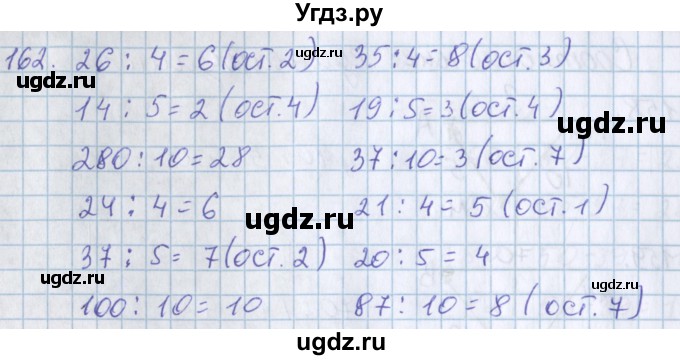 Угдз.ру
162. 26 : 4 = 6 (ост. 2) 35 : 4 = 8 (ост. 3)
14 : 5 = 2 (ост. 4) 19 : 5 = 3 (ост. 4)
280 : 10 = 28 37 : 10 = 3 (ост. 7)
24 : 4 = 6 21 : 4 = 5 (ост. 1)
37 : 5 = 7 (ост. 2) 20 : 5 = 4
100 : 10 = 10 87 : 10 = 8 (ост. 7)
ugdz.ru
ugdz.ru
ugdz.ru
ugdz.ru
ugdz.ru
ugdz.ru
ugdz.ru
ugdz.ru